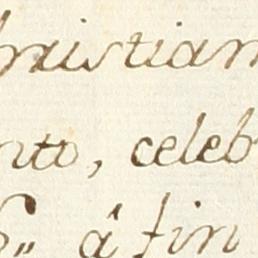 hristian
nto, celeb
S,, á fin